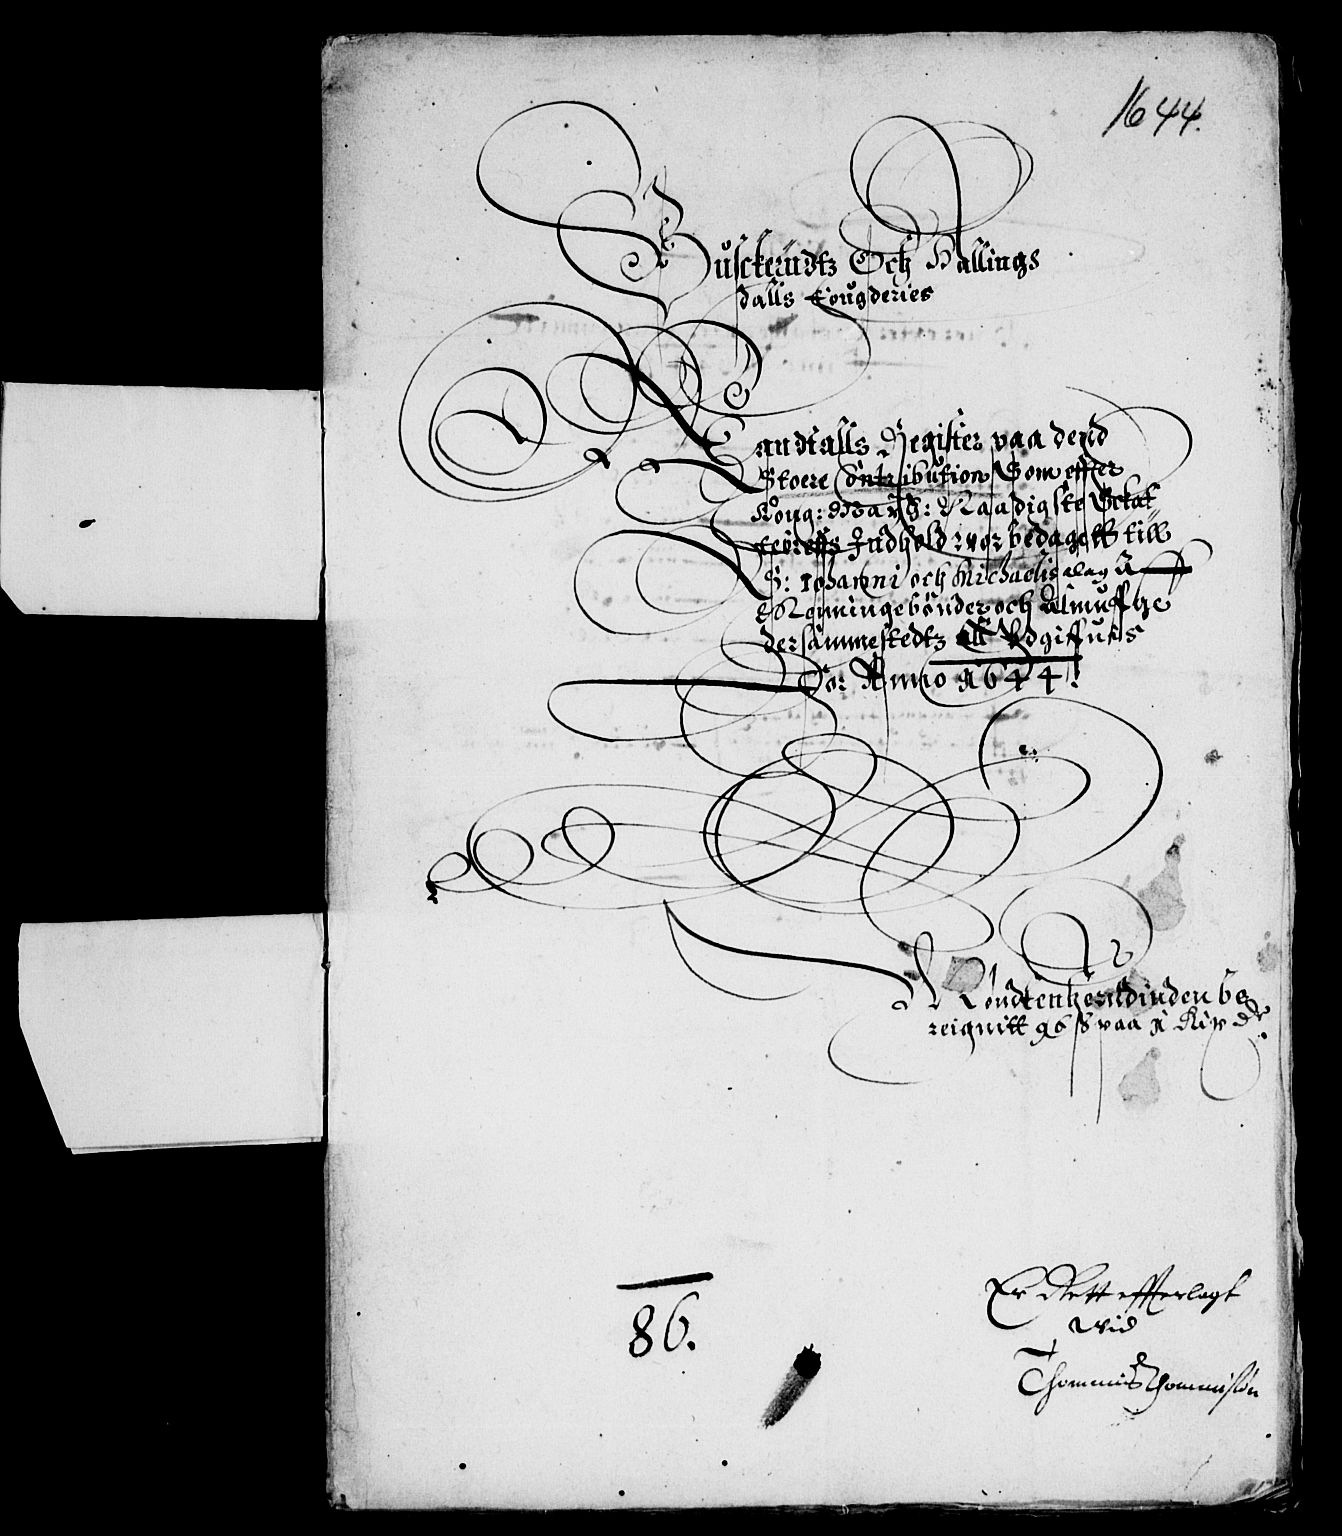 1644.
Buskerudtz Och Hallings
dalls fougderies
Mandtalls Register paa dend
Stoere Contribution Som effter
Kong: Mayt: Naadigste Schat
tebreffs Indhold vor bedagett till
S: Johanni och Michaelis dag Aff
Menninge bönder och Almuffue
dersammestedtz att Udgiffuis
For Anno 1644.
Röndtenherudinden be
reignitt 96 s paa 1 Rix dr.
86.
Er Rett effterlagt
wid
Thommis Thommisön